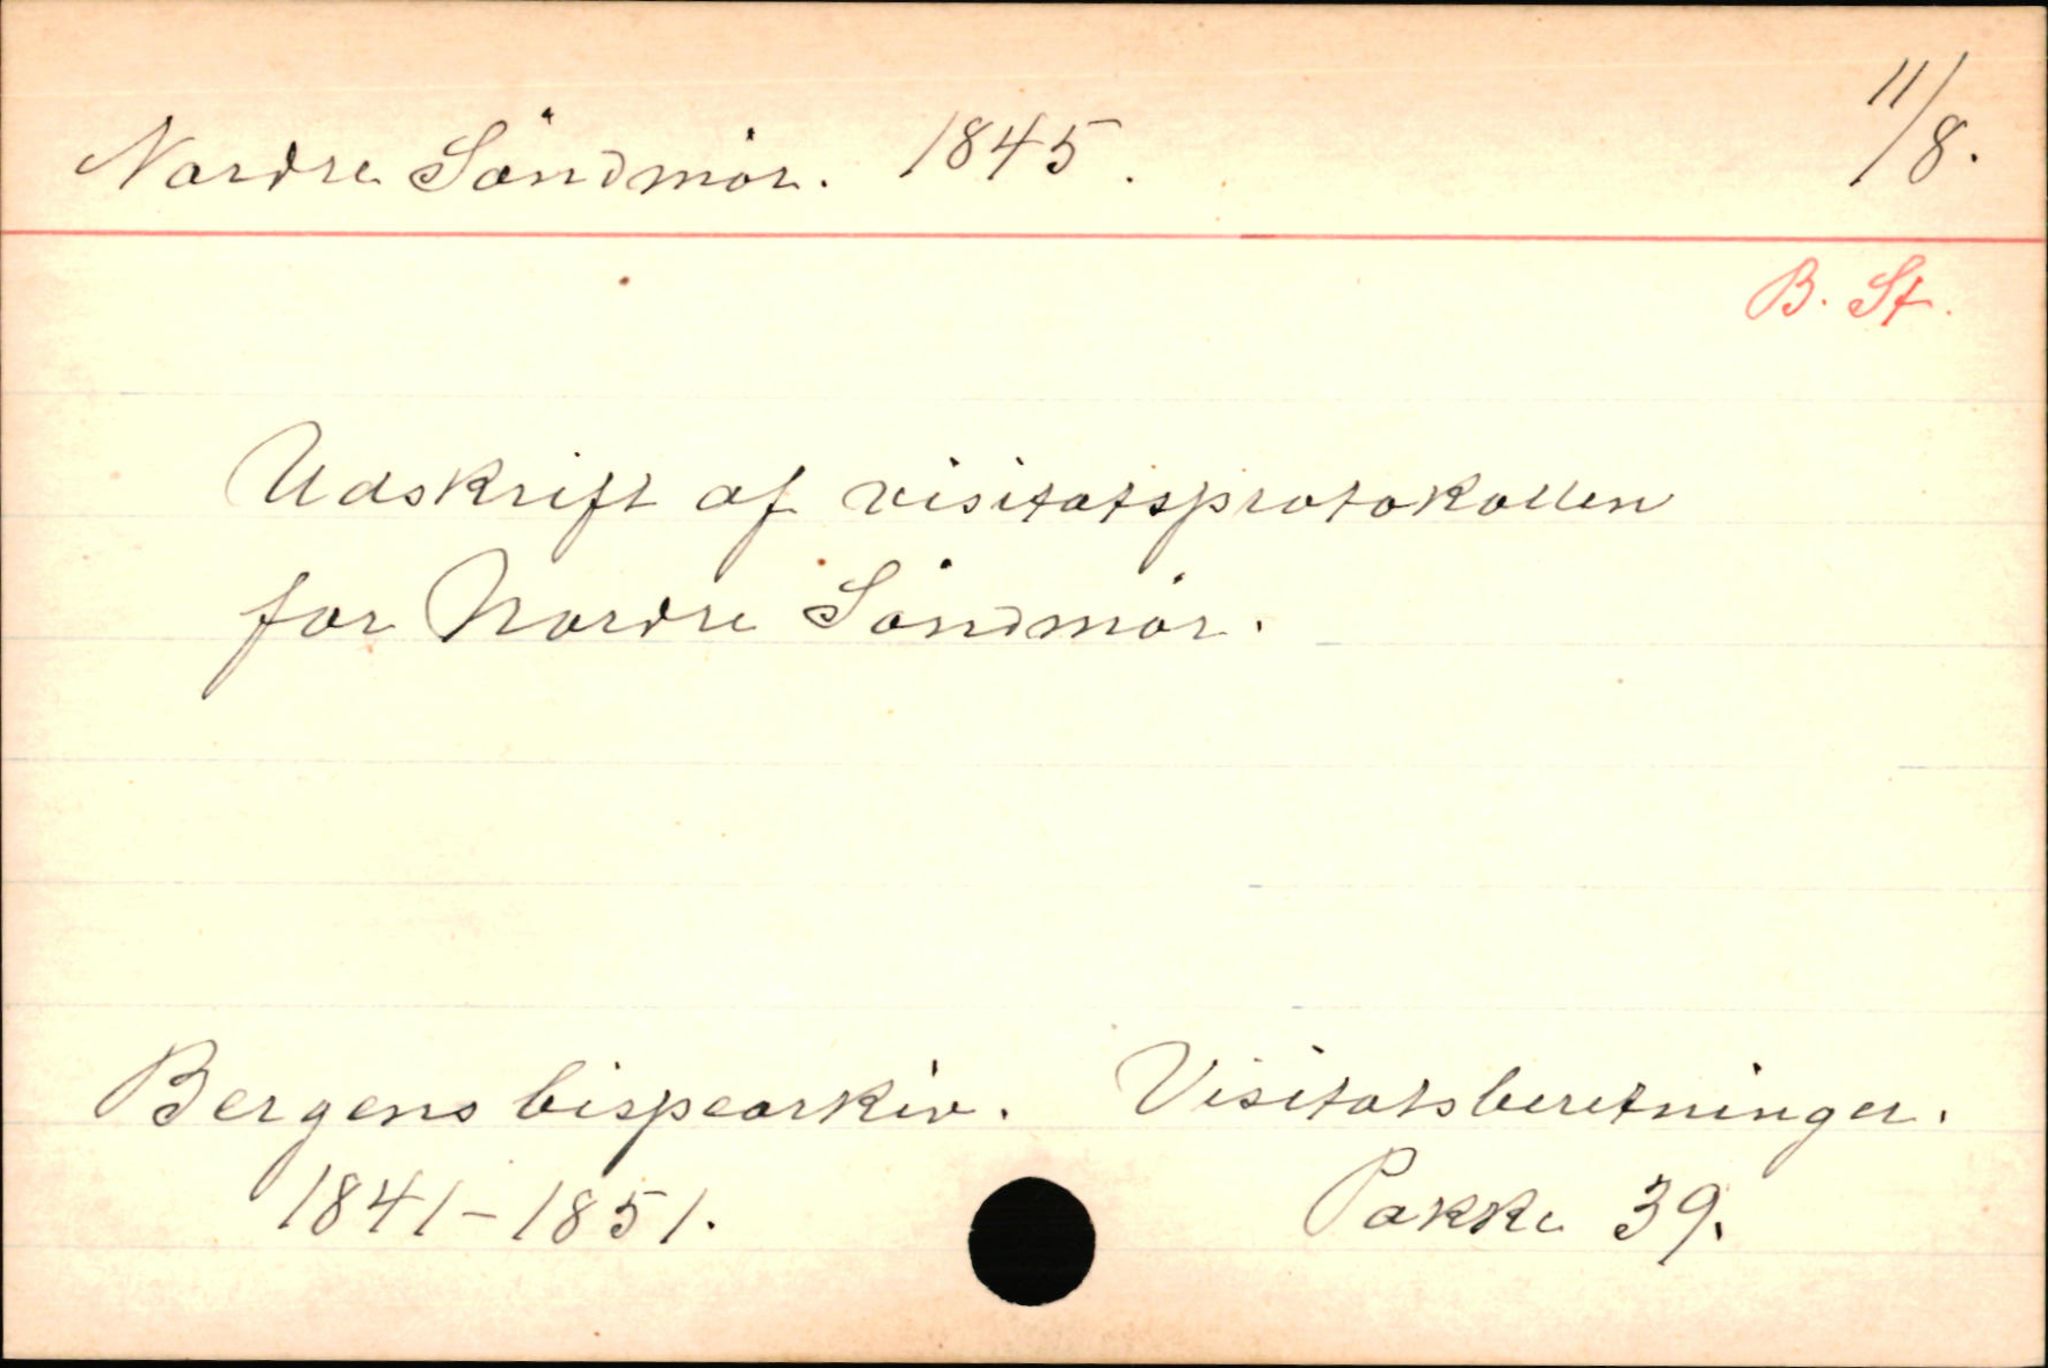 Nordre Söndmör. 1845. 11/8.
B. St.
Udskrift af visitatsprotokollen
for Nordre Söndmör.
Bergens bispearkiv. Visitatsberetninger.
1841-1851. Pakke 39.